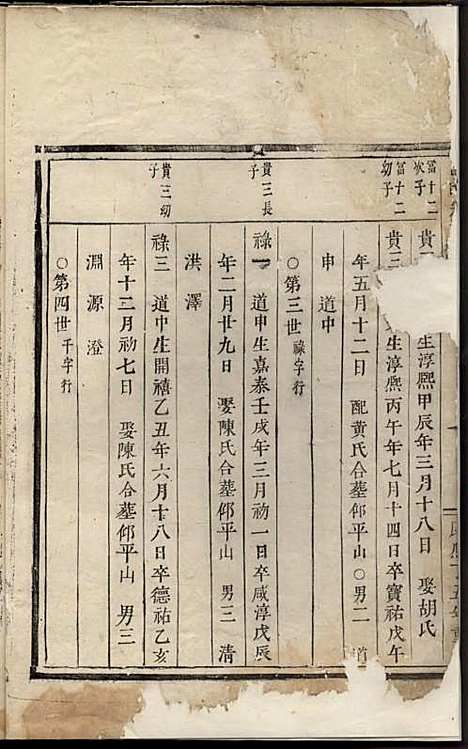 富十二
次子
貴
生淳熙甲辰年三月十八日 娶胡氏
富十二
幼子
貴三
生淳熙丙午年七月十四日卒寶祐戊午
年五月十二日 配黃氏合墓邱平山○男二 道
申道中
○第三世祿字行
貴三長
子
祿一 道申生嘉泰壬戌年三月初一日卒咸淳戊辰
年二月廿九日 娶陳氏合墓邱平山 男三 清
洪澤
貴三幼
子
祿三 道中生開禧乙丑年六月十八日卒德祐乙亥
年十二月初七日 娶陳氏合墓邱平山 男三
淵源澄
○第四世千字行